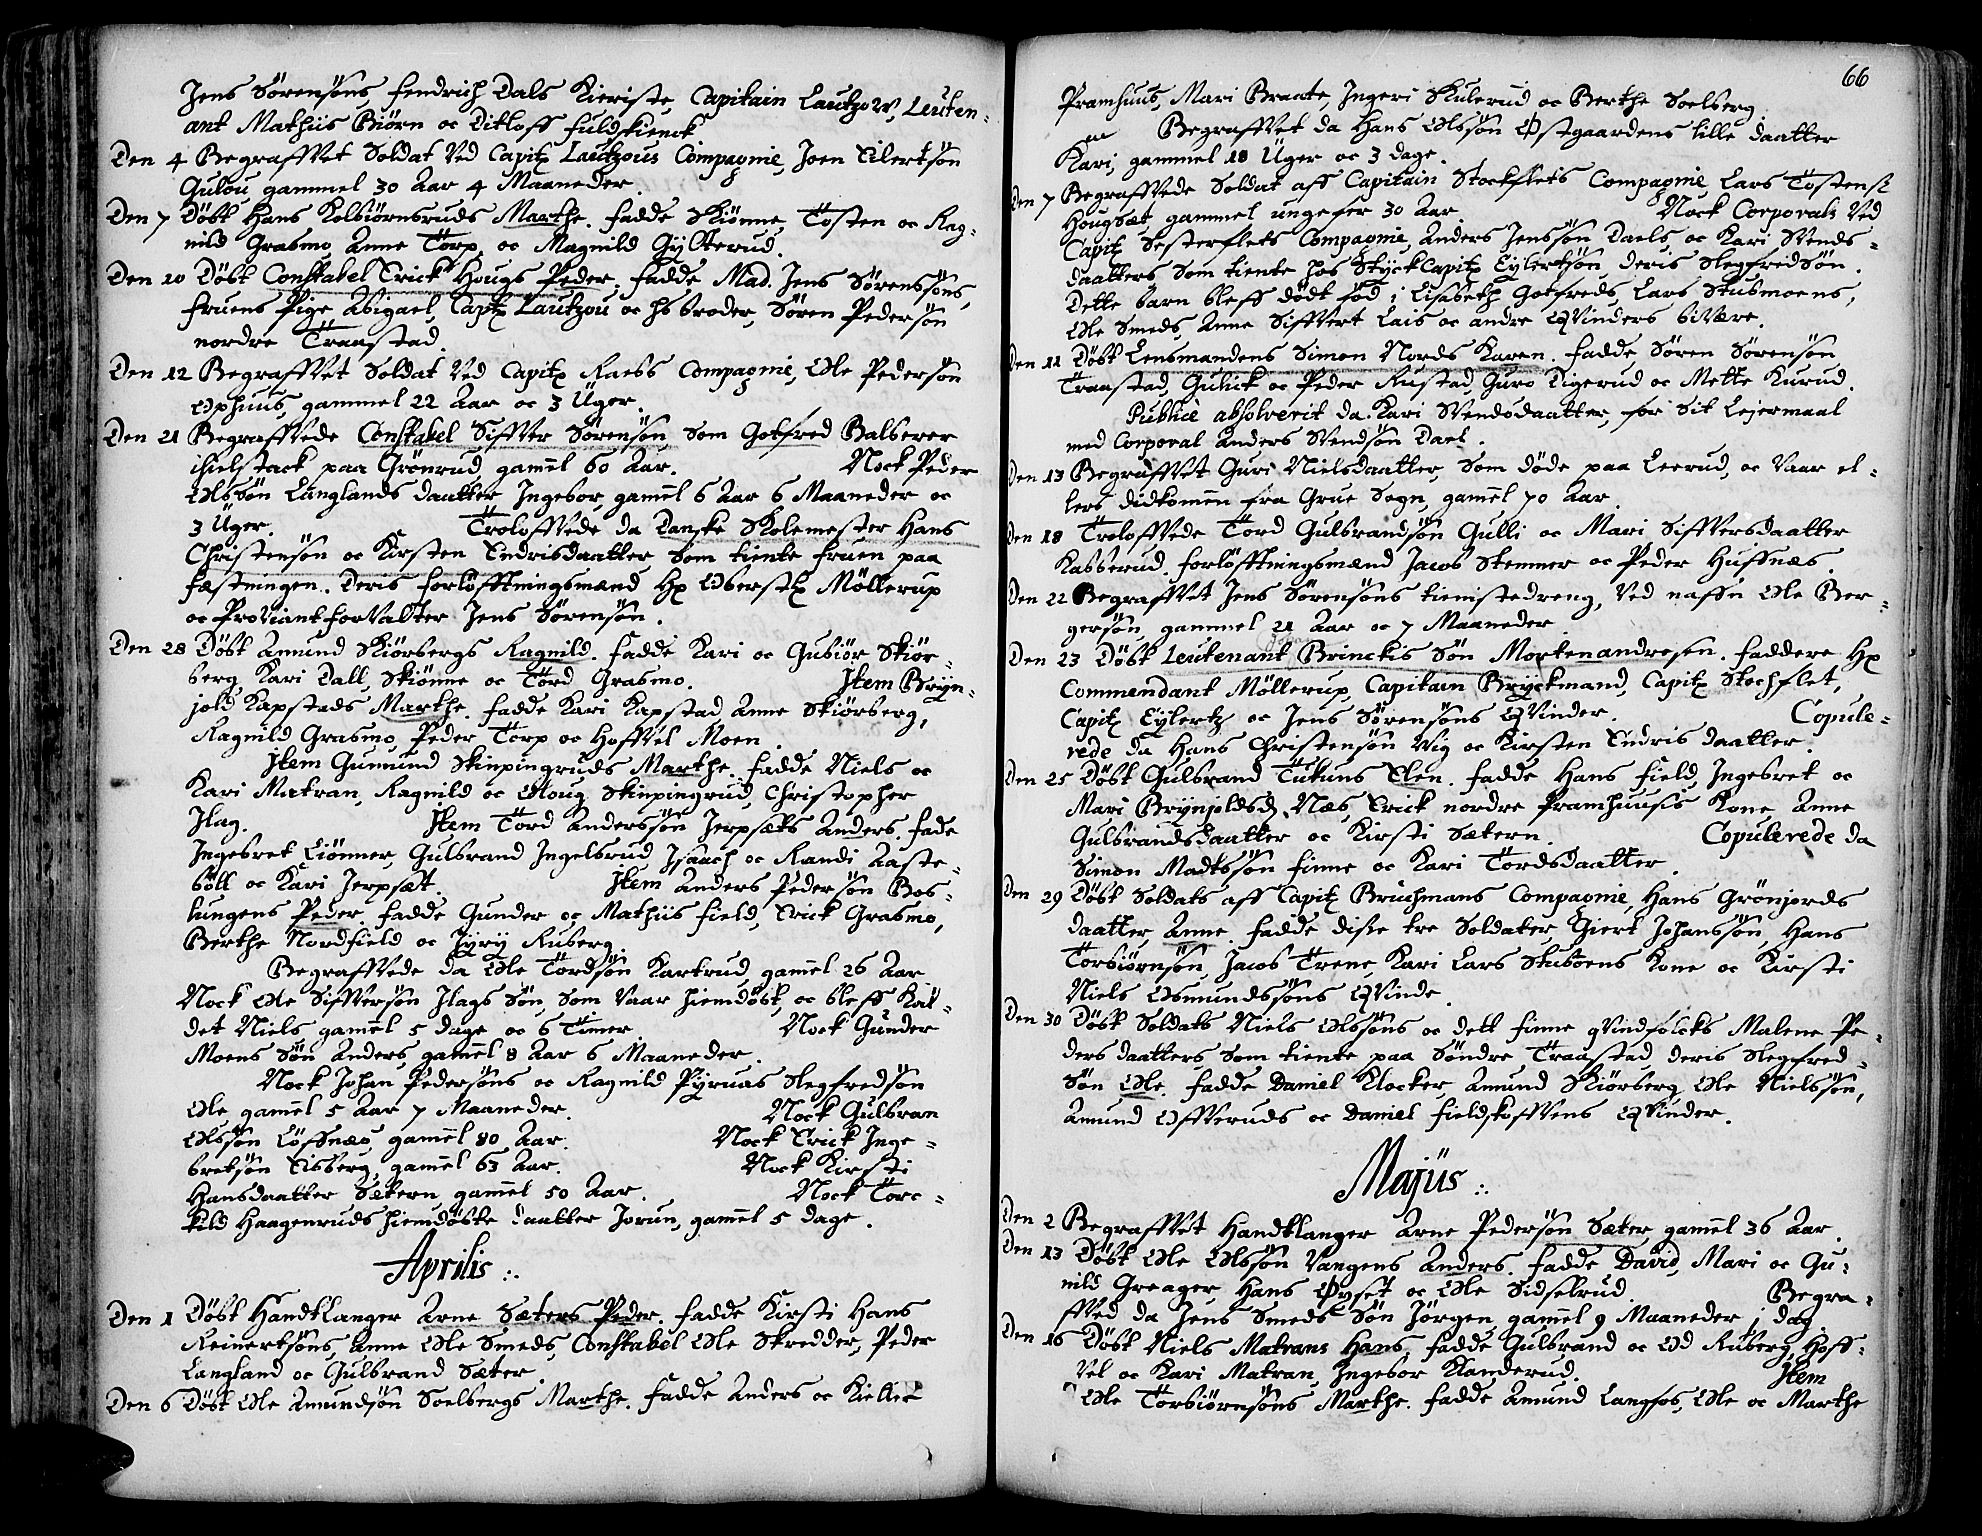 Jens Sörensöns, fendrich Dals Kieriste, Capitain Lautzow, Leuten-
ant Mathiis Biörn oc Ditloff fuldskienck
Den 4 Begraffvet Soldat ved Capitx Lautzous Compagnie, Joen Eilertsön
Gulou gammel 30 Aar 4 Maaneder.
Den 7 Döbt Hans Kolbiörnsruds Marthe. fadde Skiönne, Tosten oc Rag-
nild Grasmo Anne Torp oc Magnild Gylterud.
Den 10 Döbt Constabel Erick Hougs Peder. fadde Mad. Jens Sörenssöns,
fruens Pige Abigael, Captx Lautzou oc hs broder, Sören Pedersön
nordre Traastad.
Den 12 Begraffvet Soldat ved Capitx Raebs Compagnie, Ole Pedersön
Ophuus, gammel 22 Aar oc 3 Uger.
Den 21 Begraffvede Constabel Siffver Sörensön, som Gotfred Balberer
ihielstack paa Grönrud gamel 60 Aar. Nock Peder
Olssön Langlands daatter Ingebor, gamel 6 Aar 6 Maaneder oc
3 Uger. Troloffvede da Danske Skolemester Hans
Christensön oc Kirsten Endrisdaatter som tiente fruen paa
festningen. Deris forlöfftningsmænd Hx Oberstx Möllerup
oc Proviantforvalter Jens Sörensön.
Den 28 Döbt Amund Skiörbergs Ragnild. fadde Kari oc Gubiör Skiör-
berg Kari Dall, Skiönne oc Tord Grasmo. Item Bryn-
jold Kapstads Marthe. fadde Kari Kapstad Anne Skiörberg,
Ragnild Grasmo Peder Torp oc Hoffvel Moen.
Item Gumund Skinpingruds Marthe. fadde Niels oc
Kari Matran, Ragnild oc Skinpingrud, Christopher
Ilag. Item Tord Anderssön Jerpsets Anders. fade
Ingebret Liönner, Gulbrand Ingelsrud Isaach oc Randi Aaste-
böll oc Kari Jerpset. Item Anders Pedersön Bos-
lungens Peder. fadde Gunder oc Mathiis field, Erick Grasmo,
Berthe Nordfield oc Jyry Ruberg.
Begraffvede da Ole Tordsön Kartrud, gamel 26 Aar
Nock Ole Siffversön Ilags Sön, som vaar hiemdöbt, oc bleff kal-
det Niels gamel 5 dage oc 6 Timer Nock Gunder
Moens Sön Anders gamel 8 Aar 6 Maaneder.
Nock Johan Pedersöns oc Ragnild Slegfredsön
Ole gamel 5 Aar 7 Maaneder. Nock Gulbran
Olssön Löffnæs gamel 80 Aar. Nock Erick Inge-
bretsön Eisberg, gamel 63 Aar. Nock Kirsti
Hansdaatter Sætern gamel 50 Aar. Nock Torc-
kild Haagenruds hiemdöbte daatter Jorun, gamel 5 dage.
Aprilis :.
Den 1 Döbt Handtlanger Arne Sæters Peder. fadde Kirsti Hans
Reinertsöns, Anne Ole Smeds, Constabel Ole Skredder, Peder
Langland oc Gulbrand Sæter.
Den 6 Döbt Ole Amundsön Soelbergs Marthe. fadde Anders oc
66
Pramhuus, Mari Braate, Ingeri Skulerud oc Berthe Soelberg
Begraffvet da Hans Olssön Östgaardens lille daatter
Kari, gammel 18 Uger oc 3 dage.
Den 7 Begraffvede Soldat aff Capitain Stockflets Compagnie Lars Tostens
Hougset gammel ungefer 30 Aar. Nock Corporals ved
Capitx Sesterflets Compagnie, Anders Jenssön Daels oc Kari Svends-
daatters som tiente hos StyckCapitx Eylertsön, deris Slegfredsön.
Dette barn bleff dödt föd i Lisabeth Gotfreds Lars Stubmoens,
Ole Smeds, Anne Siffvert Lais oc andre Qvinders bivære.
Den 11 Döbt Lensmandens Simon Nords Karen. fadde Sören Sörensön
Traastad, Gulick oc Peder Rustad, Guro Digerud oc Mette Kurud.
Publice absolverit da Kari Svendsdaatter, for sit Lejermaal
med Corporal Anders Svendsön Dael.
Den 13 Begraffvet Guri Nielsdaatter, som döde paa Leerud, oc vaar el-
lers didkomen fra Grue Sogn, gamel 70 Aar
Den 18 Troloffvede Tord Gulbrandsön Gulli oc Mari Siffversdaatter
Kabberud. forlöfftningsmænd Jacob Stemner oc Peder Huffnæs.
Den 22 Begraffvet Jens Sörensöns tienistedreng, ved naffn Ole Ber-
gersön, gammel 21 Aar oc 7 Maaneder
Den 23 Döbt Leutenant Brinckis Sön Mortenandresen. faddere Hx
Commendant Möllerup, Capitain Bryckmand, Capitx Stochflet,
Capitx Eylertz oc Jens Sörensöns Qvinder. Copule-
rede da Hans Christensön Vig oc Kirsten Endris daatter.
Den 25 Döbt Gulbrand Tukuns Elen. fadde Hans field, Ingebret oc
Mari Brynjoldsd. Næs, Erick nordre Pramhuusis Kone Anne
Gulbrandsdaatter oc Kirsti Sætern. Copulerede da
Simon Madtssön finne oc Kari Tordsdaatter.
Den 29 Döbt Soldats aff Capitx Bruchmans Compagnie, Hans Grönjords
daatter Anne. fadde disse tre Soldater, Giert Johanssön Hans
Torbiörnsön, Jacob Trene, Kari Lars Stuboens Kone oc Kirsti
Niels Osmundssöns Qvinde.
Den 30 Döbt Soldats Niels Olssöns oc dett finne qvindfolcks Malene Pe-
dersdaatters, som tiente paa Söndre Traastad, deris Slegfred-
Sön Ole. fadde Daniel Klocker, Amund Skiörberg Ole Nielssön,
Amund Offveruds oc Daniel fieldskoffvens Qvinder.
Majus :.
Den 2 Begraffvet Handtlanger Arne Pedersön Sæter, gamel 36 Aar.
Den 13 Döbt Ole Olssön Vangens Anders. fadde David, Mari oc Gu-
nild Greager, Hans Öyset oc Ole Sidselrud. Begra-
ffved da Jens Smeds Sön Jörgen gamel 9 Maaneder 1 dag.
Den 16 Döbt Niels Matrans Hans, fadde Gulbrand oc Od Ruberg, Hoff-
vel oc Kari Matran, Ingebor Kanderud. Item
Ole Torbiörnsöns Marthe. fadde Amund Langfos, Ole oc Marthe